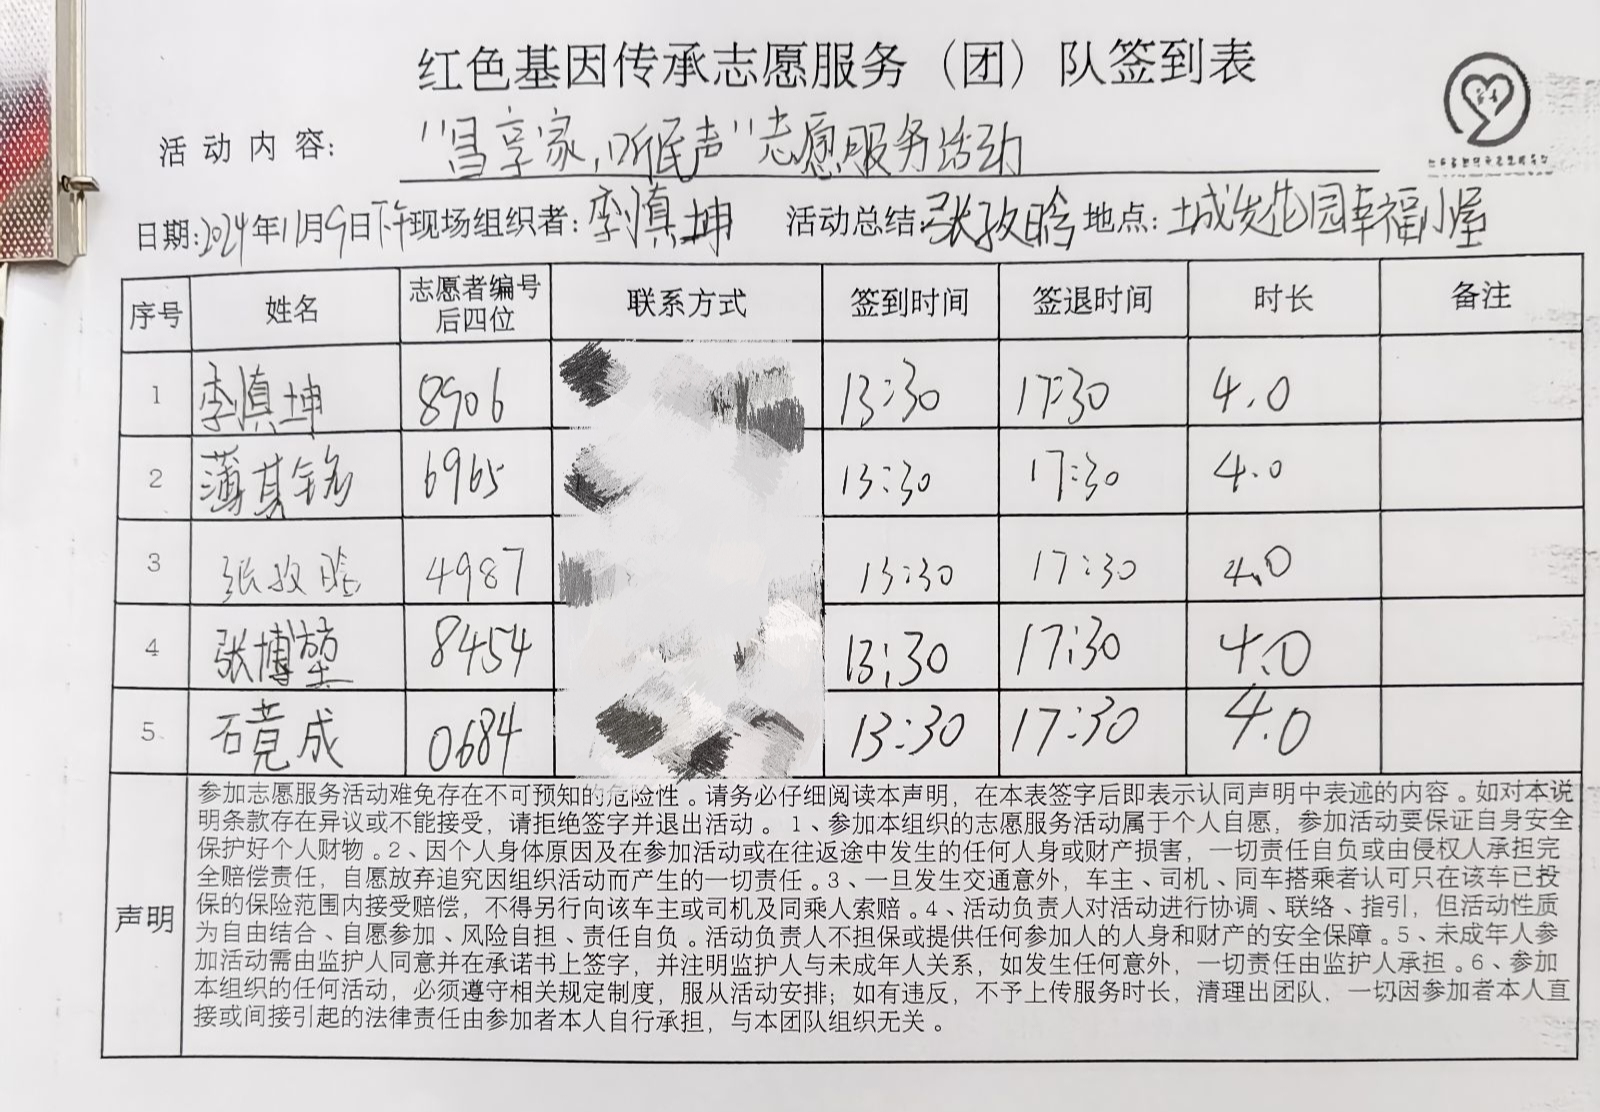 红色基因传承志愿服务（团）队签到表
活动内容: "昌享家,听民声"志愿服务活动
日期:2024年11月9日下午 现场组织者:李慎坤 活动总结:张孜晗 地点:土城先花园幸福小屋
序号 姓名 志愿者编号后四位 联系方式 签到时间 签退时间 时长 备注
1 李慎坤 8906 13:30 17:30 4.0
2 薄其铭 6965 13:30 17:30 4.0
3 张孜晗 4987 13:30 17:30 4.0
4 张博堃 8454 13:30 17:30 4.0
5 石竟成 0684 13:30 17:30 4.0
声明
参加志愿服务活动难免存在不可预知的危险性。请务必仔细阅读本声明，在本表签字后即表示认同声明中表述的内容。如对本说
明条款存在异议或不能接受，请拒绝签字并退出活动。1、参加本组织的志愿服务活动属于个人自愿，参加活动要保证自身安全
保护好个人财物。2、因个人身体原因及在参加活动或在往返途中发生的任何人身或财产损害，一切责任自负或由侵权人承担完
全赔偿责任，自愿放弃追究因组织活动而产生的一切责任。3、一旦发生交通意外，车主、司机、同车搭乘者认可只在该车已投
保的保险范围内接受赔偿，不得另行向该车主或司机及同乘人索赔。4、活动负责人对活动进行协调、联络、指引，但活动性质
为自由结合、自愿参加、风险自担、责任自负。活动负责人不担保或提供任何参加人的人身和财产的安全保障。5、未成年人参
加活动需由监护人同意并在承诺书上签字，并注明监护人与未成年人关系，如发生任何意外，一切责任由监护人承担。6、参加
本组织的任何活动，必须遵守相关规定制度，服从活动安排；如有违反，不予上传服务时长，清理出团队，一切因参加者本人直
接或间接引起的法律责任由参加者本人自行承担，与本团队组织无关。